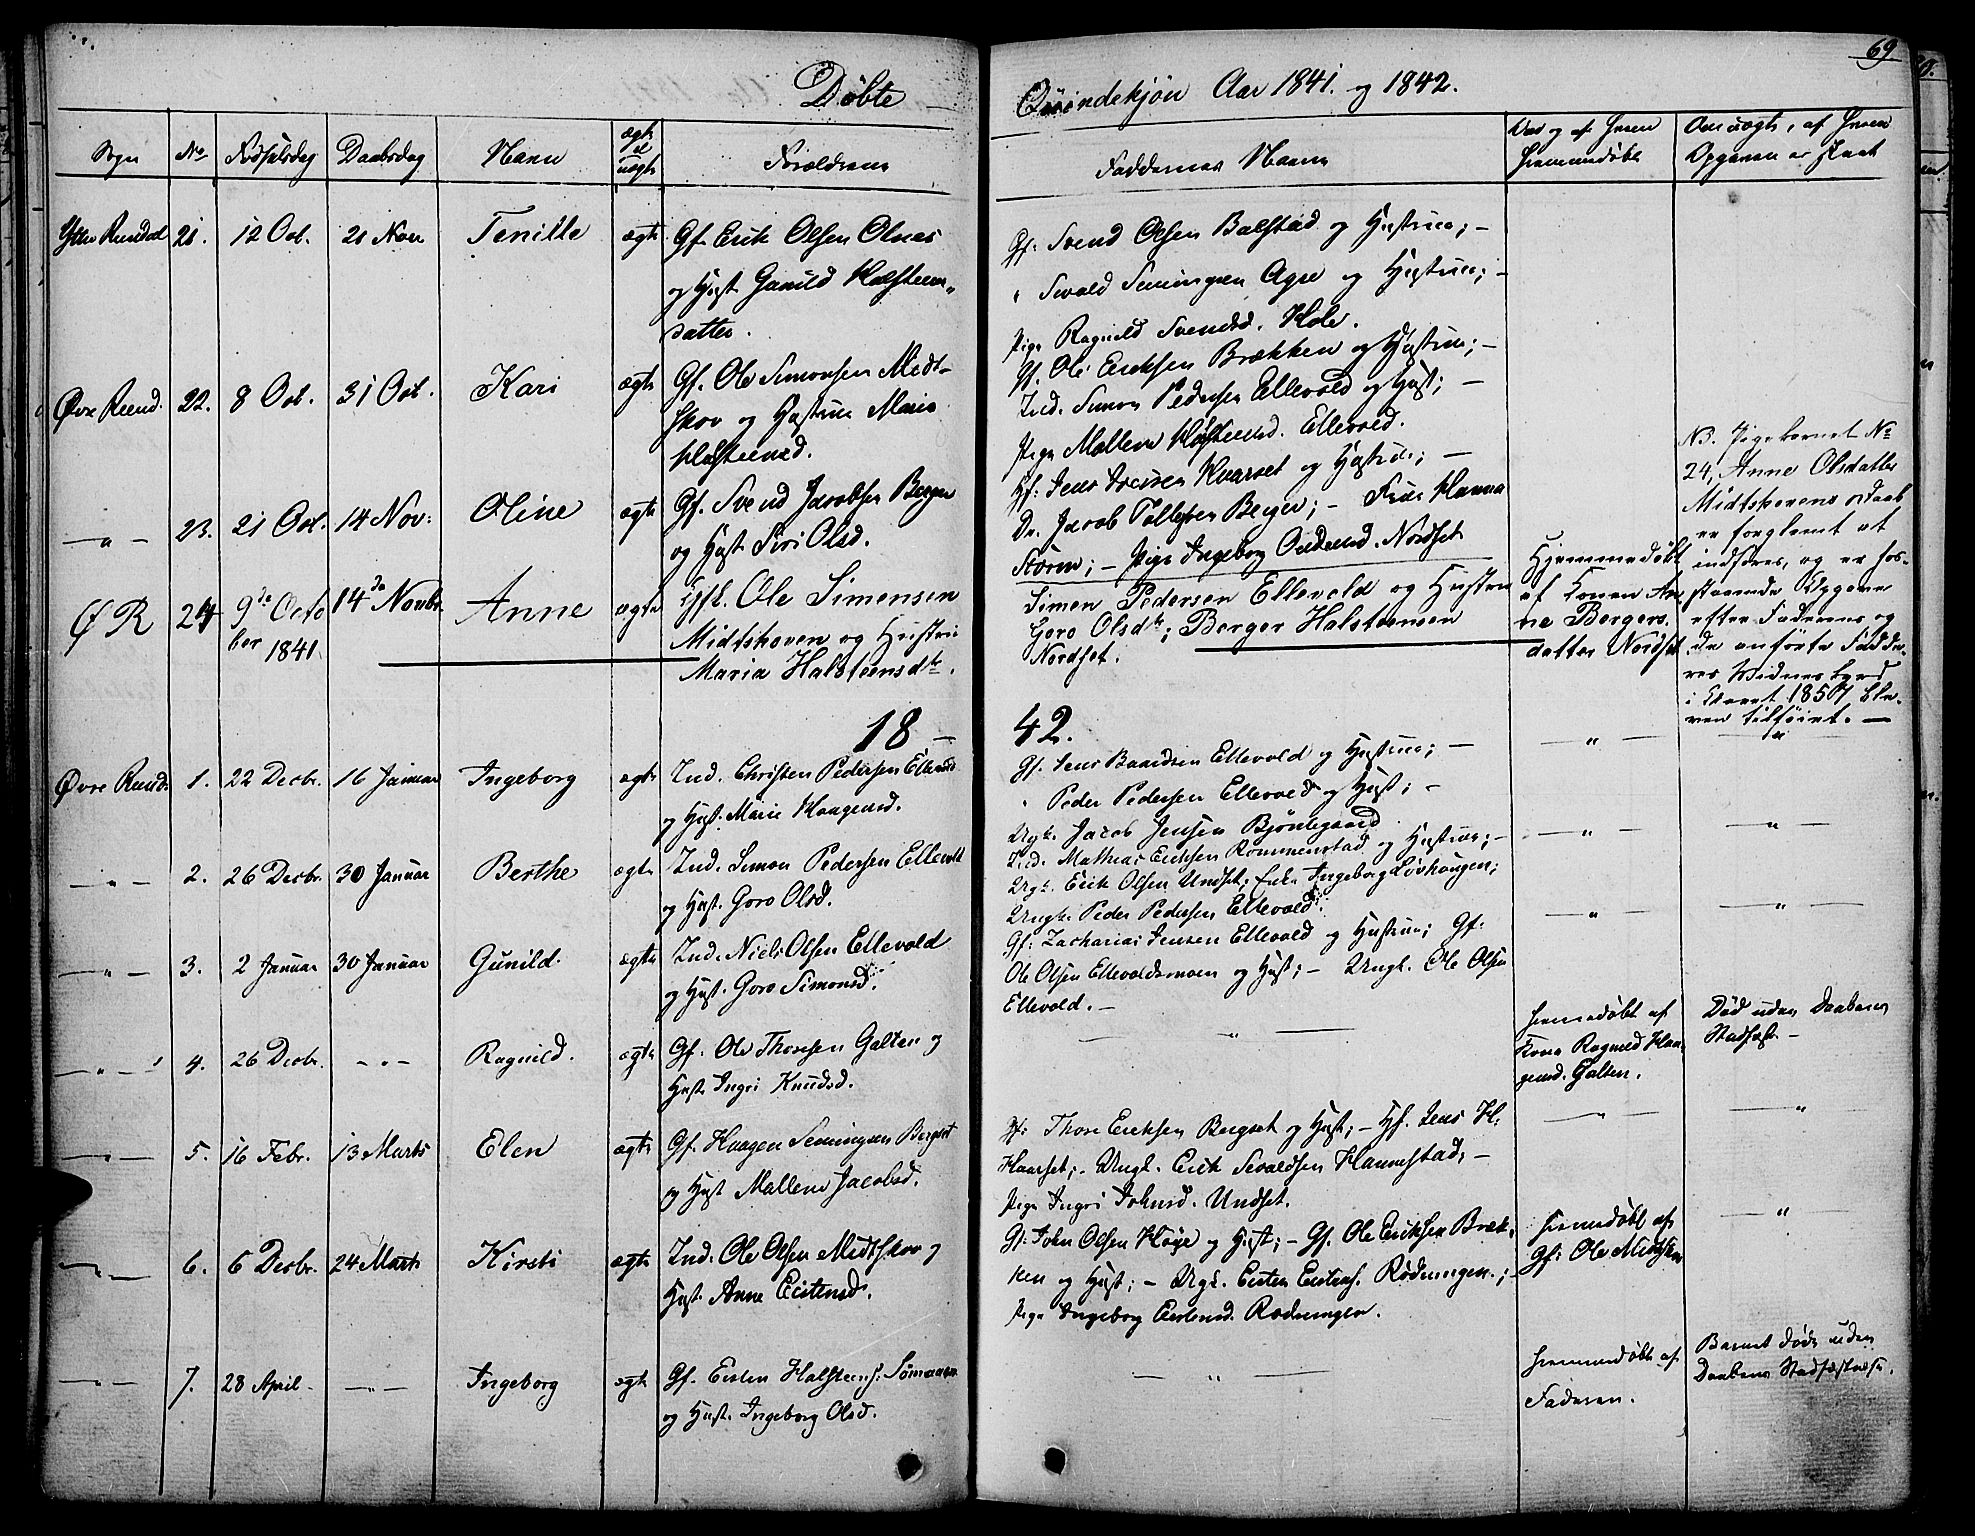 69
Døbte
Qvindekjøn Aar 1841. og 1842.
Sogn
No
Fødselsdag
Daabsdag
Navn
ægte el uægte
Forældrene
Faddernes Navne
hjemmedøbt
Ytter Rendal 21. 12 Oct. 21 Nov Tenille ægte Gf. Erik Olsen Olnæs
og Hust Gunild Halsteens-
datter.
Gf. Svend Olsen Balstad og Hustrue; -
" Sevald Semingsen Agre og Hustrue; -
Pige Ragnild Svendsd. Hole.
Øvre Rend. 22. 8 Oct. 31 Oct. Kari ægte Gf. Ole Simonsen Midt-
skov og Hustrue Marie
Halsteensd.
Gf. Ole Eriksen Brækken og Hustrue; -
Ind. Simon Pedersen Ellevold og Hust; -
Pige Mallene Halsteensd. Ellevold.
- " - 23. 21 Oct. 14 Nov: Oline ægte Gf. Svend Jacobsen Berger
og Hust Siri Olsd.
Gf. Jens Iversen Haarset og Hustrue; -
Do. Jacob Tollefsen Berger; - Frue Hanna
Storm; - Pige Ingeborg Nordset
ØR 24 9de Octo
ber 1841 14de Novbr. Anne ægte Gf. Ole Simensen
Midtskoven og Hustru
Maria Halsteensdtr.
Simen Pedersen Ellevold og Hustru
Goro Olsdtr; Berger Halsteensen
Nordset.
Hjemmedøbt
af Konen An-
ne Bergers-
datter Nordset
NB. Pigebarnet No
24, Anne Olsdatter
Midtskovens Daab
er forglemt at
indføres, og er saa-
efter Faderens og
de anførte Fadde-
res Vidnesbyrd
i Aaret 1857 ble-
ven tilføiet. -
18 - 42.
Øvre Rend. 1. 22 Decbr. 16 Januar Ingeborg ægte Ind. Christen Pedersen Ellevold
og Hust. Marie Haagensd.
Gf. Jens Baardsen Ellevold og Hustrue; -
" Peder Pedersen Ellevold og Hust; -
Ungk. Jacob Jensen Bjøntegaard
- " - 2. 26 Decbr. 30 Januar Berthe ægte Ind. Simon Pedersen Ellevold
og Hust. Goro Olsd.
Ind. Mathias Eriksen Rommenstad og Hustrue; -
Ungk. Erik Olsen Undset; Enke Ingeborg Løvhaugen;
Ungk. Peder Pedersen Ellevold.
- " - 3. 2 Januar 30 Januar Gunild. ægte Ind. Niels Olsen Ellevold
og Hust. Goro Simonsd.
Gf. Zacharias Jensen Ellevold og Hustrue; Gf.
Ole Olsen Ellevoldsmoen og Hust; - Ungk. Ole Olsen
Ellevold. -
- " - 4. 26 Decbr. - " - Ragnild. ægte Gf. Ole Thoresen Galten og
Hust. Ingri Knudsd.
hjemmedøbt af
Kone Ragnild Haa-
gensd. Galten.
Død uden Daabens
Stadfæst. -
- " - 5. 16 Febr. 13 Marts Elen ægte Gf. Haagen Semingsen Bergset
og Hust Mallene Jacobsd.
Gf. Thore Eriksen Bergset og Hust; - Gf. Jens H.
Haarset; - Ungk. Erik Sevaldsen Hannestad; -
Pige Ingri Johnsd. Undset.
- " - 6. 6 Decbr. 24 Marts Kirsti ægte Ind. Ole Olsen Midtskov og
Hust. Anne Eistensd.
Gf. John Olsen Høye og Hust; - Gf. Ole Eriksen Bræk-
ken og Hust; - Ungk. Eisten Eistens. Rødningen.; -
Pige Ingeborg Eistensd. Rødningen.
hjemmedøbt af
Gf. Ole Midtskov
- " - 7. 28 April - " - Ingeborg ægte Gf. Eisten Halsteens. Sømaaen
og Hust. Ingeborg Olsd.
hjemmedøbt af
Faderen.
Barnet døde uden
Daabens Stadfæstelse.